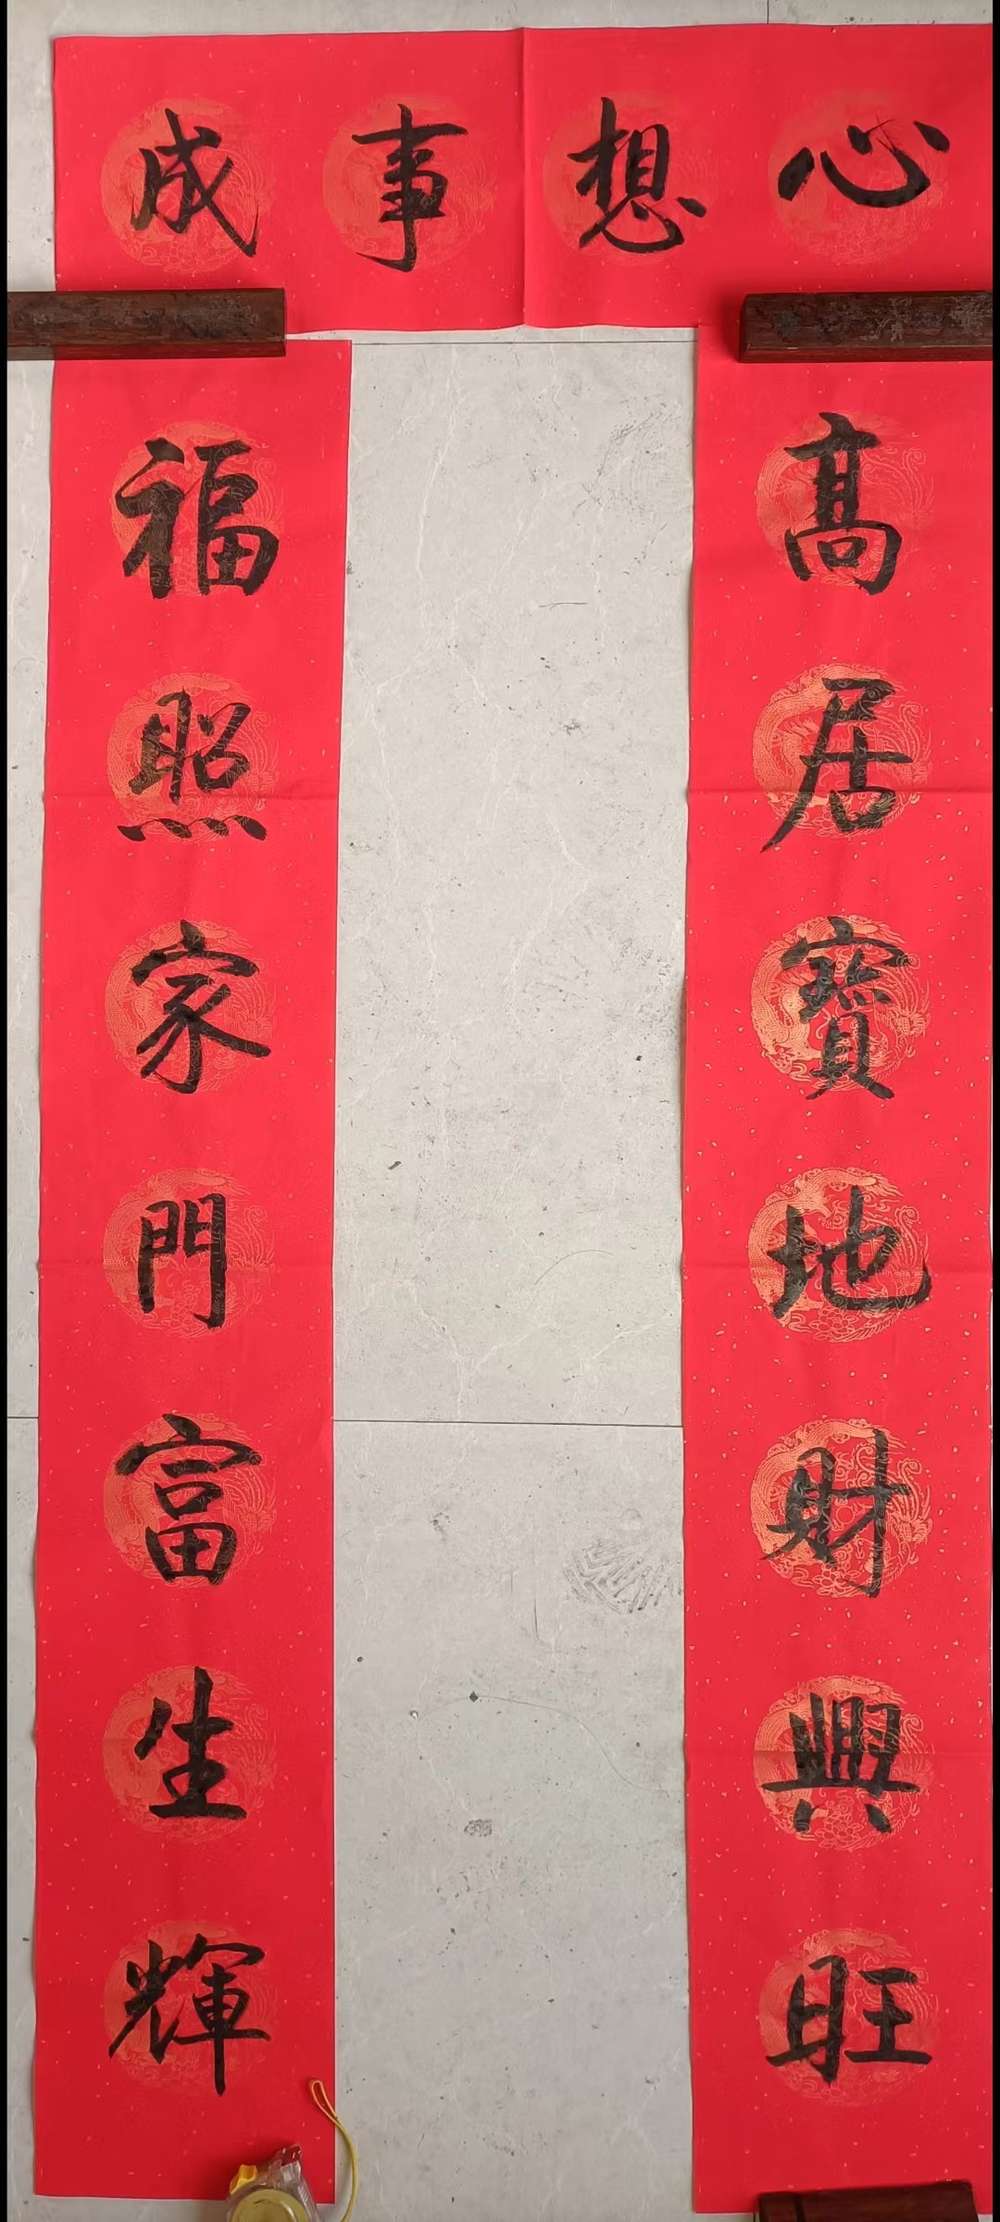 心想事成
髙居寶地財興旺
福照家門富生輝